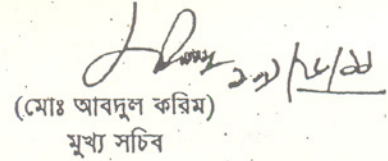 (মোঃ আবদুল করিম)
মুখ্য সচিব